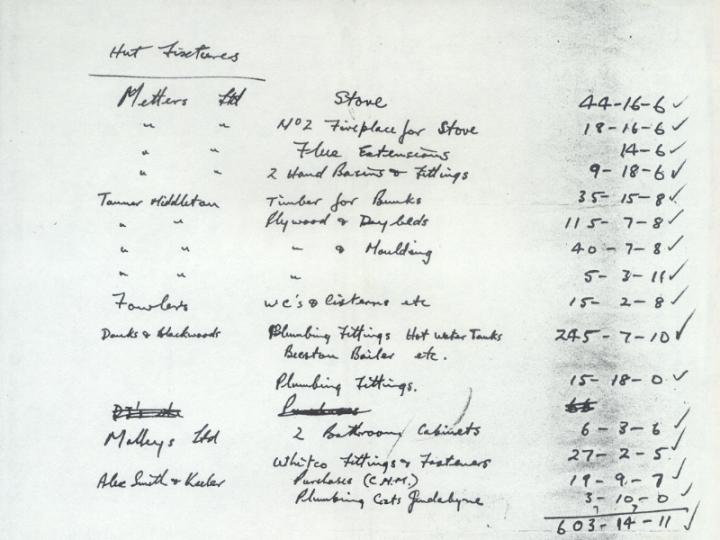 Hut Fixtures
Metters Ltd Stove 44-16-6 ✓
" " No 2 Fireplace for Stove 18-16-6 ✓
" " Flue Extensions 14-6 ✓
" " 2 Hand Basins & Fittings 9-18-6 ✓
Tanner Middleton Timber for Bunks 35-15-8 ✓
" " Plywood & Day beds 115-7-8 ✓
" " " & Moulding 40-7-8 ✓
" " " 5-3-11 ✓
Fowlers WC's & Cisterns etc 15-2-8 ✓
Danks & Blackwoods Plumbing Fittings Hot Water Tanks 245-7-10 ✓
Beeston Boiler etc.
Plumbing Fittings. 15-18-0 ✓
Malleys Ltd 2 Bathroom Cabinets 6-3-6 ✓
Whitco Fittings & Fasteners 27-2-5 ✓
Alec Smith & Purchases (C.M.M.) 19-9-7 ✓
Plumbing Costs Jindabyne 3-10-0 ✓
603-14-11 ✓